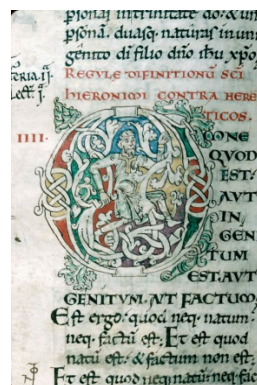 psonaꝶ intrinitate do⁊ & un
psonā. duasq; naturas in uni
genito di filio dno ihu xpo
REGVLE DIFINITIONŪ SCI
HIERONIMI CONTRA HERE
TICOS.
IIII. OMNE
QVOD
EST·
AVT
IN
GEN
TVM
EST·AVT
GENITVM. AVT FACTVM
Est ergo· quod neq· natum·
neq· factū est· Et est quod
natū est· & factum non est·
Et est quod neq natū neq fac